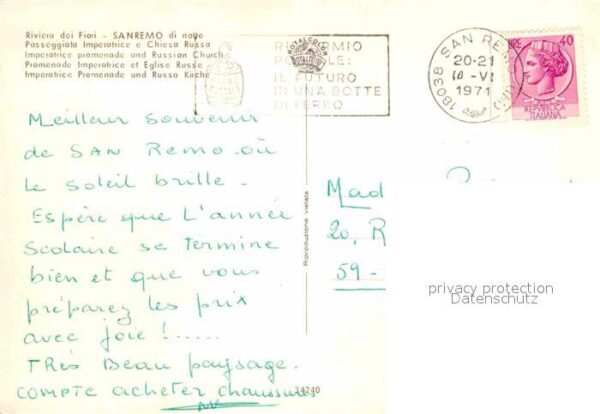 Riviera dei Fiori - SANREMO di notte
Passeggiata Imperatrice e Chiesa Russa
Imperatrice promenade and Russian Church
Promenade Imperatrice et Eglise Russe
Imperatrice Promenade und Russa Kirche
ROTALCOLOR
RISPARMIO
POSTALE:
IL FUTURO
IN UNA BOTTE
DI FERRO
18038 SAN REMO
20-21
10-VI
1971
LIRE 40
REPUBBLICA
ITALIANA
Meilleur Souvenir
de SAN Remo où
le soleil brille.
Espère que L'année
Scolaire se termine
bien et que vous
préparez les prix
avec joie!.....
TRès Beau paysage.
COMPTE acheter chaussures
Riproduzione vietata
24240
Mad
20, R
59-
privacy protection
Datenschutz